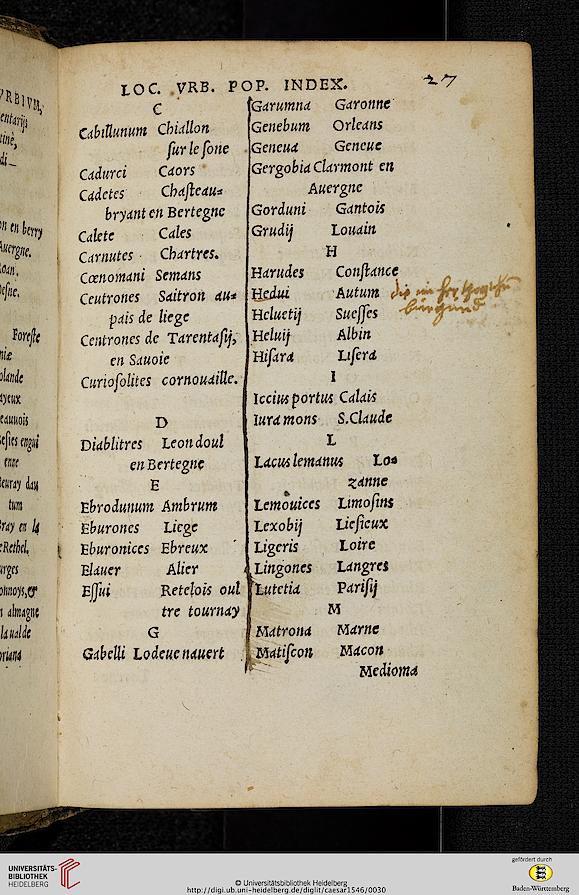 LOC. VRB. POP. INDEX.
27
C
Cabillunum Chiallon
ſur le ſone
Cadurci Caors
Cadetes Chaſteau=
bryant en Bertegne
Calete Cales
Carnutes Chartres.
Cœnomani Semans
Ceutrones Saitron au=
pais de liege
Centrones de Tarentaſij,
en Sauoie
Curioſolites cornouaille.
D
Diablitres Leondoul
en Bertegne
E
Ebrodunum Ambrum
Eburones Liege
Eburonices Ebreux
Elauer Alier
Eſſui Retelois oul
tre tournay
G
Gabelli Lodeue nauert
Garumna Garonne
Genebum Orleans
Geneua Geneue
Gergobia Clarmont en
Auergne
Gorduni Gantois
Grudij Louain
H
Harudes Conſtance
Hedui Autum
Heluetij Sueſſes
Heluij Albin
Hiſara Liſera
I
Iccius portus Calais
Iura mons S.Claude
L
Lacus lemanus Lo=
zanne
Lemouices Limoſins
Lexobij Lieſieux
Ligeris Loire
Lingones Langres
Lutetia Pariſij
M
Matrona Marne
Matiſcon Macon
Medioma
UNIVERSITÄTS-
BIBLIOTHEK
HEIDELBERG
© Universitätsbibliothek Heidelberg
http://digi.ub.uni-heidelberg.de/diglit/caesar1546/0030
gefördert durch
Baden-Württemberg